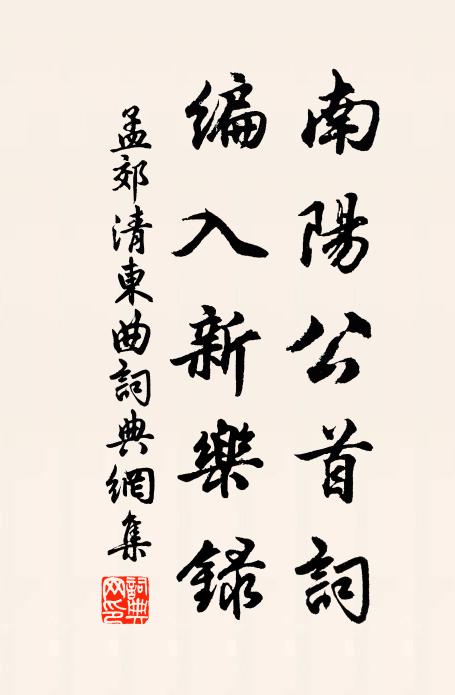 南陽公首詞
编入新樂録
孟郊清東曲詞典網集
詞典网印